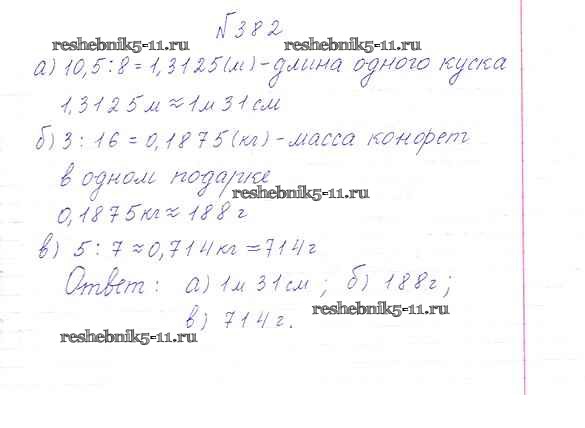 №382
reshebnik5-11.ru reshebnik5-11.ru
а) 10,5:8=1,3125(м)-длина одного куска
1,3125м≈1м 31см
б) 3:16=0,1875(кг)-масса конфет
в одном подарке
reshebnik5-11.ru
0,1875кг≈188г
в) 5:7≈0,714кг=714г
Ответ: а) 1м 31см; б) 188г;
reshebnik5-11.ru
в) 714г.
reshebnik5-11.ru